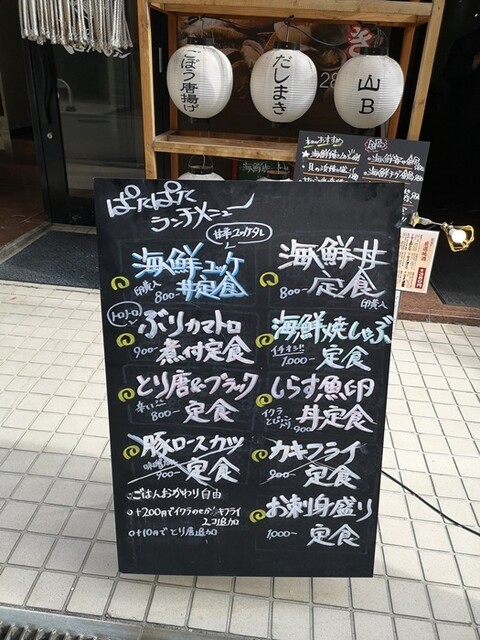 ごぼう唐揚げ
だしまき
山B
海鮮焼しゃぶ
ランチメニュー
甘辛ユッケダレ
海鮮ユッケ
丼定食
卵黄入
800-
海鮮丼
定食
800-
卵黄入
トロトロ
ぶりカマトロ
煮付定食
900-
海鮮焼しゃぶ
イチオシ!!
定食
1,000-
とり唐&ブラック
辛い
定食
800-
しらす魚卵
丼定食
イクラ
とびこ
入り
900
豚ロースカツ
定食
900-
カキフライ
定食
900-
お刺身盛り
定食
1,000-
○ごはんおかわり自由
○+200円でイクラのせかカキフライ
2コ追加
○+10円でとり唐追加